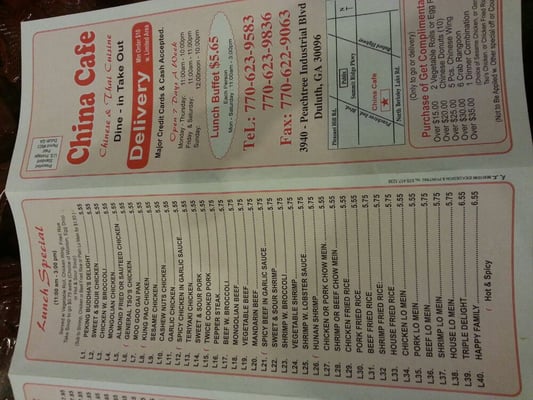 China Cafe
Chinese & Thai Cuisine
Dine - in Take Out
Delivery
Min Order $15
Limited Area
Major Credit Cards & Cash Accepted.
Open 7 Days A Week
Monday - Thursday:
11:00am - 10:00pm
Friday & Saturday:
Sunday:
12:00noon - 10:00pm
Lunch Buffet $5.65
Each Person
Mon - Saturday
TeL: 770-623-9583
770-623-9836
Fax: 770-622-9063
3940 - Peachtree Industrial Blvd
Duluth, GA 30096
Pleasant Hill Rd.
Publix
China Cafe
North Berkeley Lake Rd.
(Only to go or delivery)
Purchase of Get Complimentary
Over $15.00
Over $20.00 Chinese Donuts (10)
Over $25.00 5 Pcs. Chicken Wing
Over $30.00 Crab Rangoon
1 Dinner Combination
Lunch Special
(11:00 am - 3:00 pm)
L1. PEKING BUDDHA'S DELIGHT 5.55
L2. SWEET & SOUR CHICKEN 5.55
L3. CHICKEN W. BROCCOLI 5.55
L4. MONGOLIAN CHICKEN 5.55
L5. ALMOND FRIED OR SAUTEED CHICKEN 5.55
L6. GENERAL TSO'S CHICKEN 5.55
L7. MOO GOO GAI PAN 5.55
L8. KUNG PAO CHICKEN 5.55
L9. SESAME CHICKEN 5.55
L10. CASHEW NUTS CHICKEN 5.55
L11. GARLIC CHICKEN 5.55
L12. SPICY CHICKEN IN GARLIC SAUCE 5.55
L13. TERIYAKI CHICKEN 5.55
L14. SWEET & SOUR PORK 5.55
L15. TWICE COOKED PORK 5.55
L16. PEPPER STEAK 5.75
L17. BEEF W. BROCCOLI 5.75
L18. MONGOLIAN BEEF 5.75
L19. VEGETABLE BEEF 5.75
L20. MANDARIN BEEF 5.75
L21. SPICY BEEF IN GARLIC SAUCE 5.75
L22. SWEET & SOUR SHRIMP 5.75
L23. SHRIMP W. BROCCOLI 5.75
L24. VEGETABLE SHRIMP 5.75
L25. SHRIMP W. LOBSTER SAUCE 5.75
L26. HUNAN SHRIMP 5.75
L27. CHICKEN OR PORK CHOW MEIN
L28. SHRIMP OR BEEF CHOW MEIN 5.75
L29. CHICKEN FRIED RICE 5.55
L30. PORK FRIED RICE
L31. BEEF FRIED RICE 5.75
L32. SHRIMP FRIED RICE 5.75
L33. HOUSE FRIED RICE 5.75
L34. CHICKEN LO MEIN 5.55
L35. PORK LO MEIN 5.55
L36. BEEF LO MEIN 5.75
L37. SHRIMP LO MEIN 5.75
L38. HOUSE LO MEIN 5.75
L39. TRIPLE DELIGHT 6.55
L40. HAPPY FAMILY 6.55
Hot & Spicy